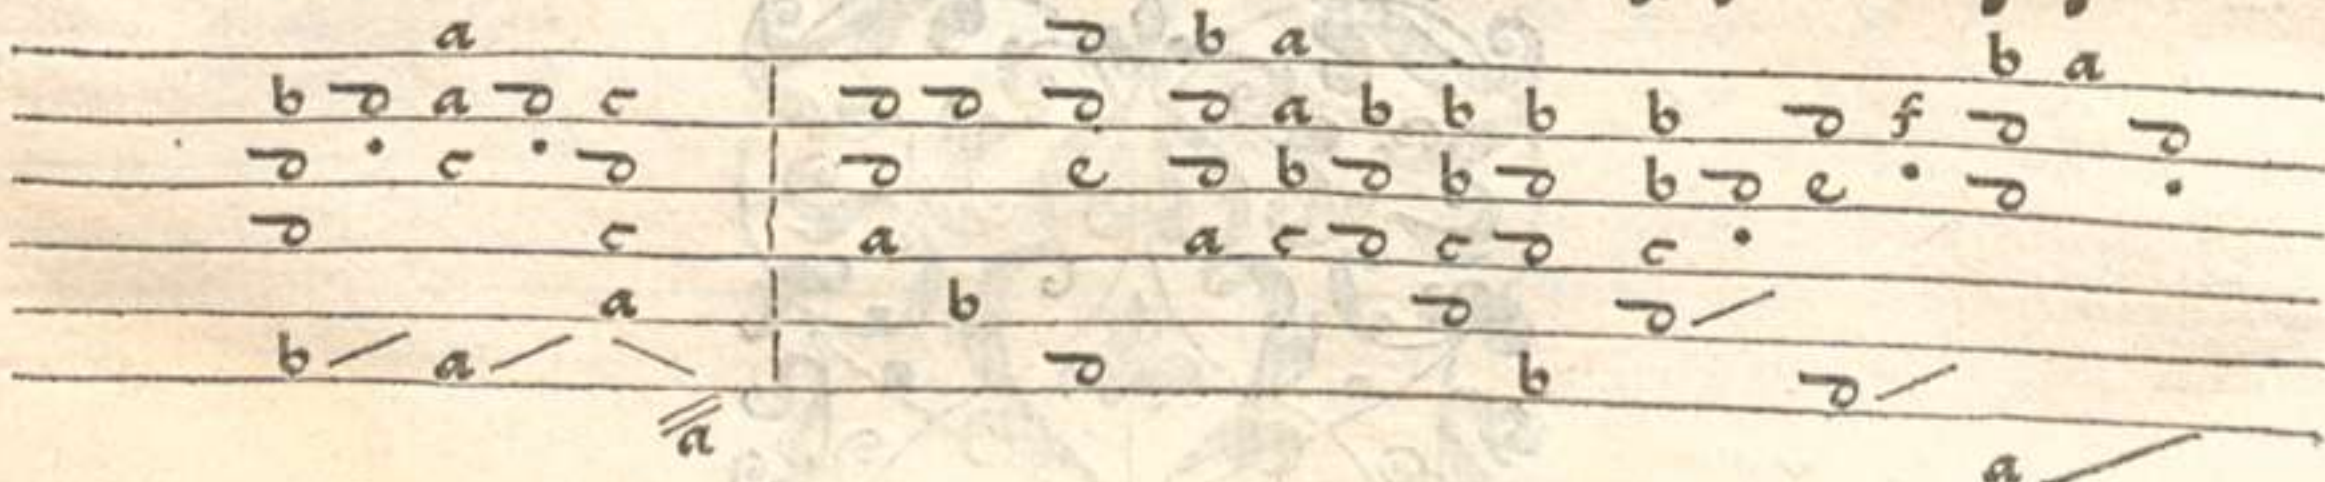 a d b a b a
b d a d c | d d d d a b b b b d f d d
d • c • d | d e d b d b d b d e • d •
d c | a a c d c d c •
a | b d d /
b / a / \ | d b d /
//a a /